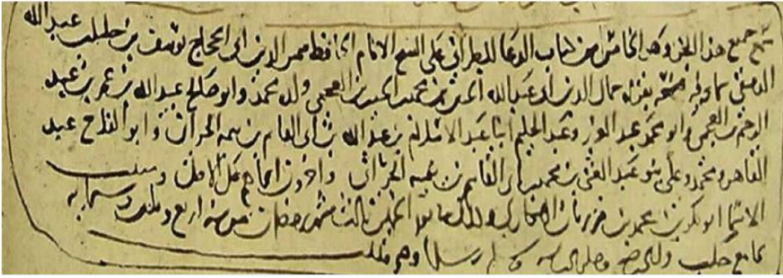 سمع جميع هذا الجزء وهو الخامس من كتاب الدعا للطبراني على الشيخ الامام الحافظ شمس الدين ابي الحجاج يوسف بن خليل بن عبد الله
الدمشقي سماعه فيه بقراه جمال الدين ابي عبد الله الحسين بن محمد بن الحسين بن العجمي ولده محمد وابو صالح عبد الله بن عمر بن عبد
الرحيم بن العجمي وابو محمد عبد العزيز وعبد الحليم ابنا عبد السلام بن عبد الله بن ابي القاسم بن تيميه الحراني وابو الفرج عبد
القاهر ومحمد وعلي بنو عبد الغني بن محمد بن ابي القاسم بن تيميه الحراني واخرون اسماهم على الاصل ومثبت
الاسما ابو بكر بن محمد بن الانصاري وذلك في يوم الخميس ثالث شهر رمضان من سنه اربع وثلثين وستمايه
بجامع حلب ولله الحمد وصلى الله على